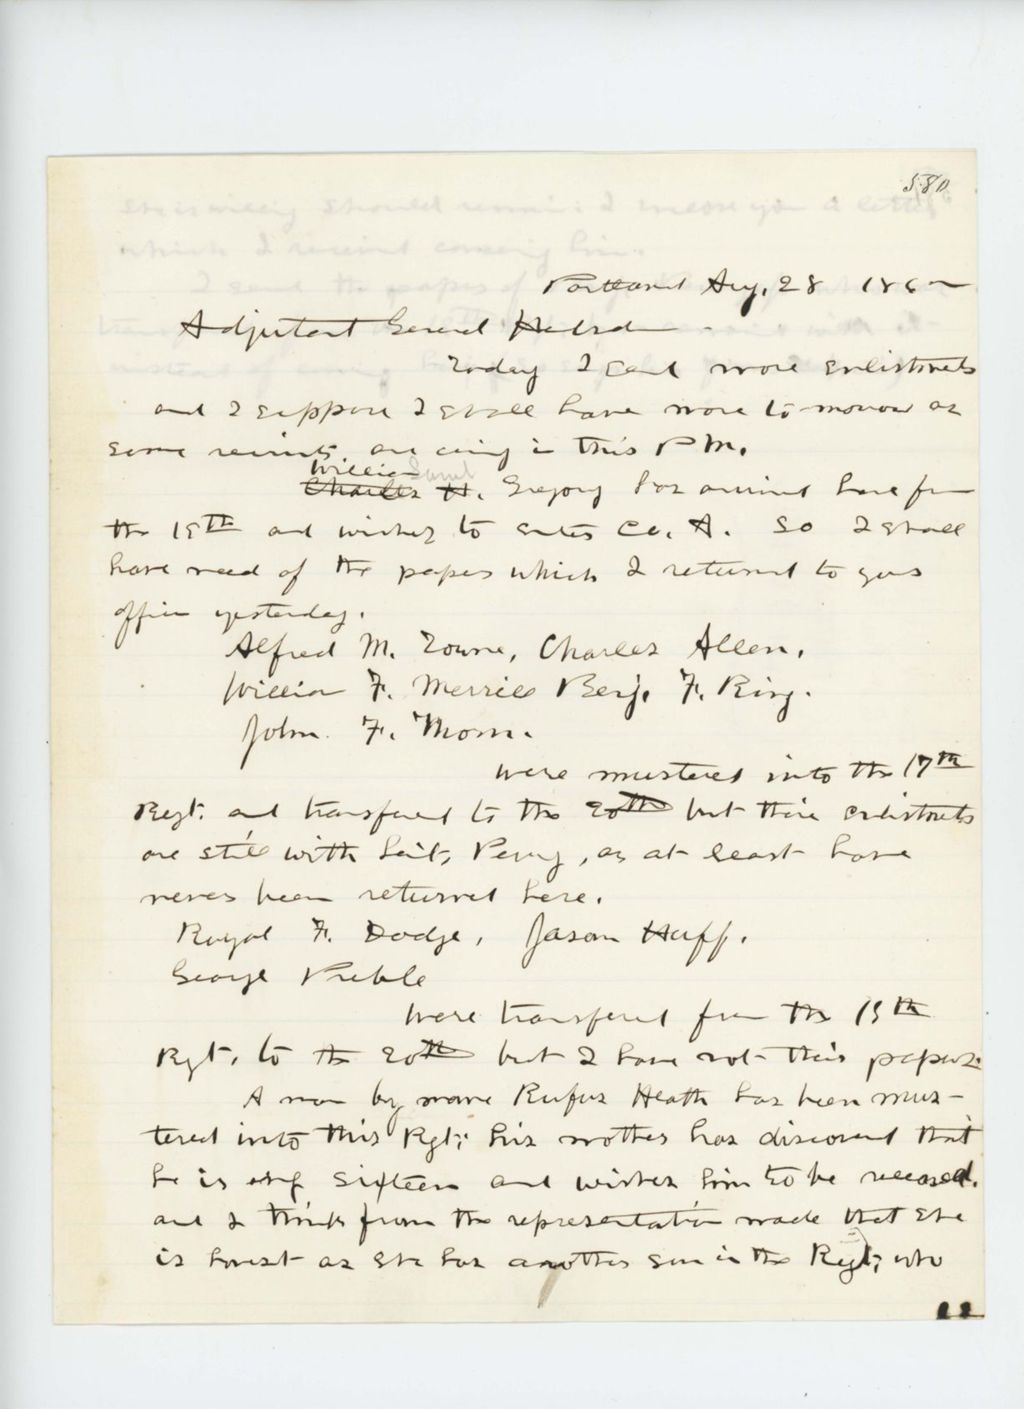 580
Portland Aug. 28 1862
Adjutant General Hodsdon.
Today I send more enlistments
and I suppose I shall have more to-morrow as
some recruits are coming in this P.M.
William
Charles H. Gregory has arrived here from
the 15th and wishes to enter Co. A. So I shall
have need of the papers which I returned to your
office yesterday.
Alfred M. Towne, Charles Allen,
William F. Merrill Benj. F. Ring.
John F. Morse.
were mustered into the 17th
Regt. and transfered to the 20th but their enlistments
are still with Leit. Perry, or at least have
never been returned here.
Royal F. Dodge, Jason Huff.
George Preble
were transfered from the 15th
Rgt. to the 20th but I have not their papers.
A man by name Rufus Heath has been mus-
tered into this Rgt; his mother has discovered that
he is only sixteen and wishes him to be released.
and I think from the representation made that she
is honest as she has another son in the Regt; who